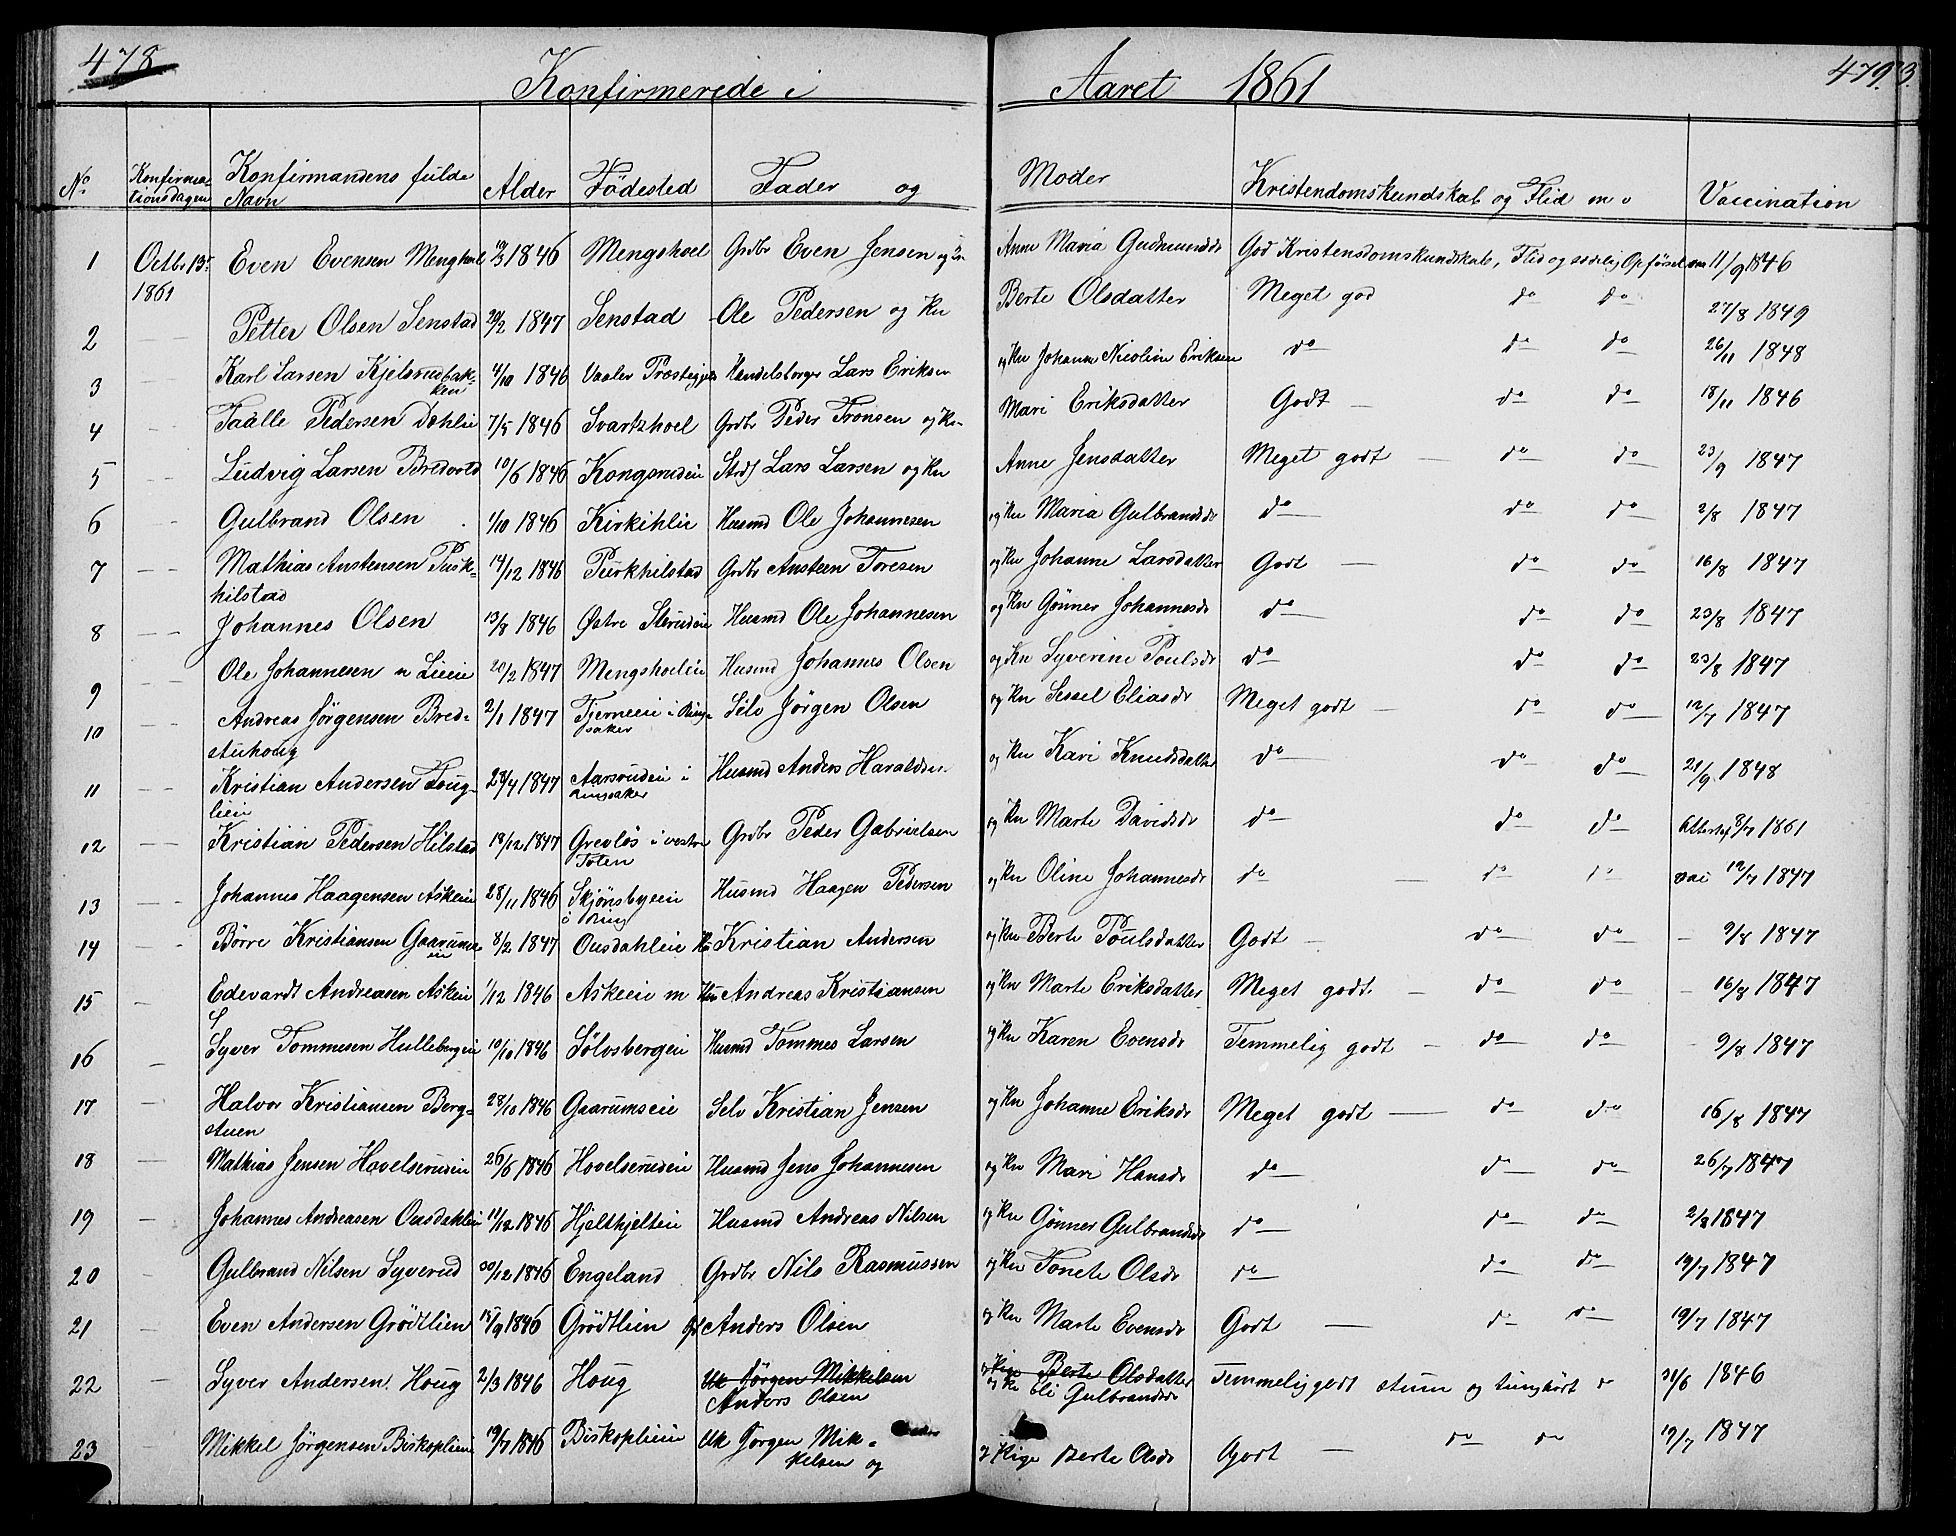 478
Konfirmerede i Aaret 1861
479.
No Konfirmationsdagen Konfirmandens fulde Navn Alder Födested Fader og Moder Kristendomskundskab og Flid m. Vaccination
1 Octbr 13. 1861 Even Evensen Mengshoel 19/3 1846 Mengshoel Grdbr Even Jensen og Kn Anne Maria Gudmundsdr God Kristendomskundskab, Flid og sædelig Opførsel 11/9 1846
2 Petter Olsen Senstad 20/2 1847 Senstad Ole Pedersen og Kn Berte Olsdatter Meget god do do 27/8 1849
3 Karl Larsen Kjelsrudbakken 4/10 1846 Vaaler Præstegjeld Handelsborger Lars Eriksen og Kn Johanne Nicoline Eriksen do do do 26/11 1848
4 Taalle Pedersen Dahlie 7/5 1846 Svartshoel Grdbr Peder Tronsen og Kn Mari Eriksdatter Godt do do 18/11 1846
5 Ludvig Larsen Bredvold 10/6 1846 Kongsrudeie Lars Larsen og Kn Anne Jensdatter Meget godt do do 23/9 1847
6 Gulbrand Olsen 1/10 1846 Kirkihlie Husmd Ole Johannesen og Kn Maria Gulbrandsdr do do do 2/8 1847
7 Mathias Anstensen Purkhilstad 14/12 1846 Purkhilstad Grdbr Ansteen Toresen og Kn Johanne Larsdatter Godt do do 16/8 1847
8 Johannes Olsen 13/8 1846 Østre Slerudeie Husmd Ole Johannesen og Kn Gönner Johannesdr do do do 23/8 1847
9 Ole Johannesen n Lieie 20/2 1847 Mengshoeleie Husmd Johannes Olsen og Kn Syverine Poulsdr do do do 23/8 1847
10 Andreas Jörgensen Bredstuhoug 2/1 1847 Tjerneeie i Ringsaker Selv Jörgen Olsen og Kn Sessel Eliasdr Meget godt do do 12/7 1847
11 Kristian Andersen Touglien 28/4 1847 Aarsrudeie i Ringsaker Husmd Anders Haraldsen og Kn Kari Knudsdatter do do do 21/9 1848
12 Kristian Pedersen Hilstad 18/12 1847 Grevlös i vestre Toten Grdbr Peder Gabrielsen og Kn Marte Davidsdr do do do Attest 8/7 1861
13 Johannes Haagensen Askeie 28/11 1846 Skjönsbyeie i Ring Husmd Haagen Pedersen og Kn Oline Johannesdr do do do vac 12/7 1847
14 Börre Kristiansen Gaarumseie 8/2 1847 Ousdahleie Hu Kristian Andersen og Kn Berte Poulsdatter Godt do do 9/8 1847
15 Edevardt Andreasen Askeie 1/12 1846 Askeeie m Hu Andreas Kristiansen og Kn Marte Eriksdatter Meget godt do do 16/8 1847
16 Syver Tommesen Hullebergeie 10/10 1846 Sölvsbergeie Husmd Tommes Larsen og Kn Karen Evensdr Temmelig godt do do 9/8 1847
17 Halvor Kristiansen Bergstuen 28/10 1846 Gaarumseie Selv Kristian Jensen og Kn Johanne Eriksdr Meget godt do do 16/8 1847
18 Mathias Jensen Hovelsrudeie 26/6 1846 Hovelserudeie Husmd Jens Johannesen og Kn Mari Hansdr do do do 26/7 1847
19 Johannes Andreasen Ousdahleie 11/12 1846 Hjelthjelteie Husmd Andreas Nilsen og Kn Gönner Gulbrandsdr do do do 2/8 1847
20 Gulbrand Nilsen Syverud 30/12 1846 Engeland Grdbr Nils Rasmussen og Kn Tonete Olsdr do do do 19/7 1847
21 Even Andersen Grödtlien 15/9 1846 Grödtlien Anders Olsen og Kn Marte Evensdr Godt do do 19/7 1847
22 Syver Andersen Houg 2/3 1846 Houg Uk Jörgen Mikkelsen Anders Olsen og Pige Berte Olsdatter og Kn Eli Gulbrandsdr Temmelig godt stum og tunghört do 31/6 1846
23 Mikkel Jörgensen Biskoplieie 19/7 1846 Biskoplieie Uk Jörgen Mikkelsen og Pige Berte Olsdr Godt do do 19/7 1847